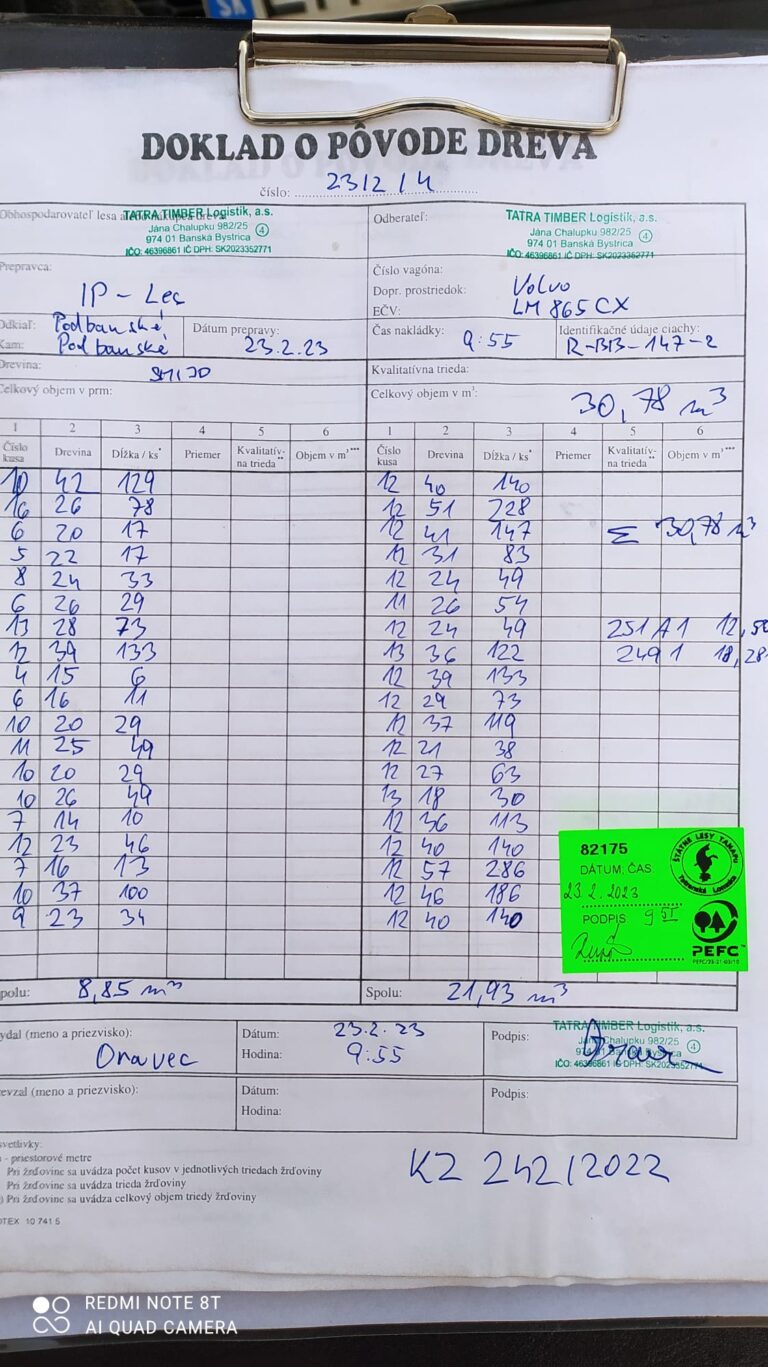 DOKLAD O PÔVODE DREVA
číslo: 2312/4
Obhospodarovateľ lesa
TATRA TIMBER Logistik, a.s.
Jána Chalupku 982/25
974 01 Banská Bystrica
4
IČO: 46396861 IČ DPH: SK2023352771
Odberateľ:
TATRA TIMBER Logistik, a.s.
Jána Chalupku 982/25
974 01 Banská Bystrica
4
IČO: 46396861 IČ DPH: SK2023352771
Prepravca:
IP - Les
Číslo vagóna:
Dopr. prostriedok: Volvo
EČV: LM 865 CX
Odkiaľ: Podbanské
Kam: Podbanské
Dátum prepravy:
23.2.23
Čas nakládky: 9:55
Identifikačné údaje ciachy:
R-BB-147-2
Drevina:
Kvalitatívna trieda:
Celkový objem v prm:
Celkový objem v m³: 30,78 m³
1 2 3 4 5 6 1 2 3 4 5 6
Číslo kusa Drevina Dĺžka / ks* Priemer Kvalitatív-na trieda** Objem v m³*** Číslo kusa Drevina Dĺžka / ks* Priemer Kvalitatív-na trieda** Objem v m³***
10 42 129 12 40 140
16 26 78 12 51 228
6 20 17 12 41 147 Σ 30,78 m³
5 22 17 12 31 83
8 24 33 12 24 49
6 26 29 11 26 54
13 28 73 12 24 49 251 A 1
12 39 133 13 36 122 249 1 18,28
4 15 6 12 39 133
6 16 11 12 29 73
10 20 29 12 37 119
11 25 49 12 21 38
10 20 29 12 27 63
10 26 49 13 18 30
7 14 10 12 36 113
12 23 46 12 40 140
7 16 13 12 57 286
10 37 100 12 46 186
9 23 34 12 40 140
82175
DÁTUM, ČAS
23.2.2023
PODPIS 9 55
ŠTÁTNE LESY TANAPU
Tatranská Lomnica
PEFC™
PEFC/23-21-03/10
polu: 8,85 m³
Spolu: 21,93 m³
ydal (meno a priezvisko):
Oravec
Dátum: 23.2.23
Hodina: 9:55
Podpis:
TATRA TIMBER Logistik, a.s.
Jána Chalupku 982/25
974 01 Banská Bystrica
4
IČO: 46396861 IČ DPH: SK2023352771
evzal (meno a priezvisko):
Dátum:
Hodina:
Podpis:
svetlivky:
- priestorové metre
Pri žrďovine sa uvádza počet kusov v jednotlivých triedach žrďoviny
Pri žrďovine sa uvádza trieda žrďoviny
) Pri žrďovine sa uvádza celkový objem triedy žrďoviny
OTEX 10 741 5
KZ 242/2022
REDMI NOTE 8T
AI QUAD CAMERA